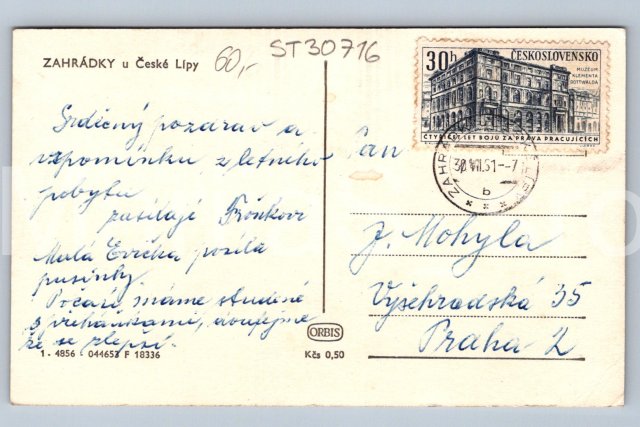 ZAHRÁDKY u České Lípy
60,-
ST30716
30h ČESKOSLOVENSKO
MUZEUM
KLEMENTA
GOTTWALDA
ČTYŘICET LET BOJŮ ZA PRÁVA PRACUJÍCÍCH
ZAHRÁ
b
Srdečný pozdrav a
vzpomínku z letního
pobytu
zasílají
Malá Evička posílá
pusinky.
Počasí máme studené
s přeháňkami, doufejme
že se zlepší.
Pan
J. Mohyla
Vyšehradská 35
Praha 2
ORBIS
1 - 4856 044653 F 18336
Kčs 0,50